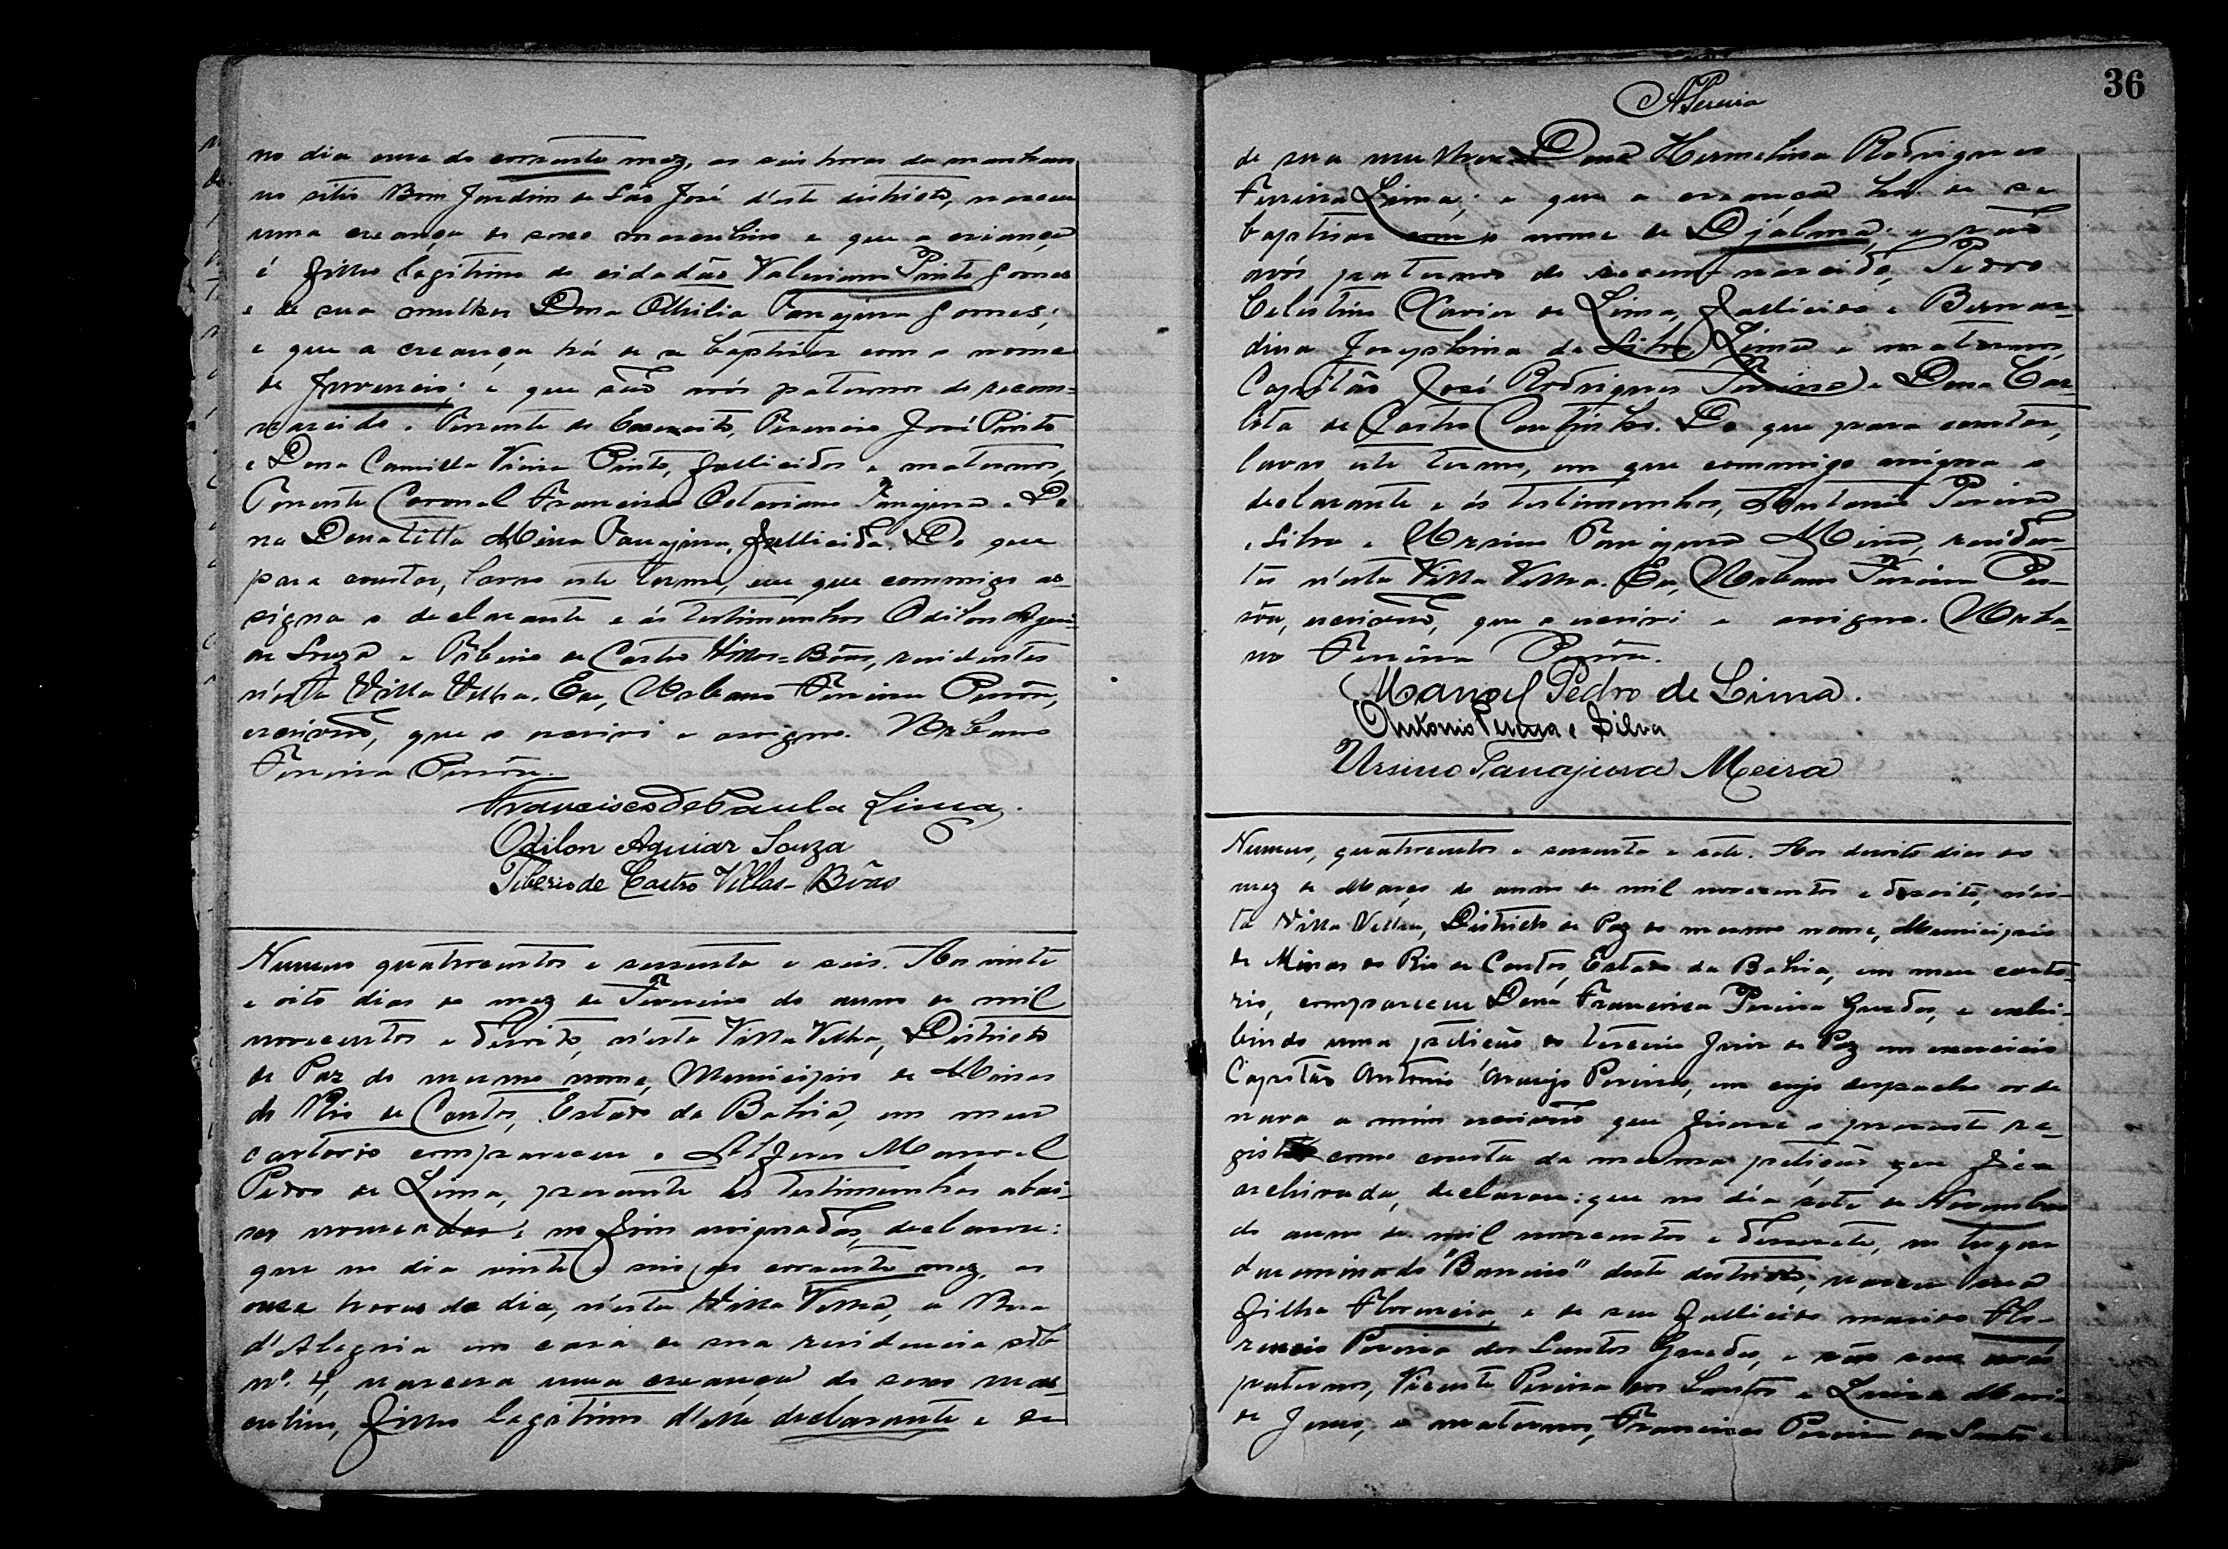 no dia onze do corrente mez, as seis horas da manhan
no sitio Bom Jardim de São José d'este districto, nasceu
uma creança do sexo masculino e que a criança
é filho legitimo do cidadão Valeriano Pinto Gomes
e de sua mulher Dona Othilia Tanajura Gomes;
e que a creança há de se baptisar com o nome
de Juvencio; e que são avós paternos do recem-
nascido, Tenente do Exercito, José Pinto
e Dona Camilla Vieira Pinto, fallecidos e maternos,
Tenente Coronel Francisco Octaviano Tanajura e Do
na Donatilla Meira Tanajura, fallecida. Do que
para constar, lavro este termo, em que commigo as-
signa o declarante e ás testimunhas Odilon Aguiar
de Souza e Tiberio de Castro Villas-Bôas, residentes
n'esta Villa Velha. Eu, Urbano Ferreira
escrivão, que o escrevi e assigno. Urbano
Ferreira
Francisco de Paula Lima.
Odilon Aguiar Souza
Tiberio de Castro Villas-Bôas
Numero quatrocentos e sessenta e seis. Aos vinte
e oito dias do mez de Fevereiro do anno de mil
novecentos e dezoito, n'esta Villa Velha, Districto
de Paz do mesmo nome, Municipio de Minas
do Rio de Contas, Estado da Bahia, em meu
cartorio compareceu o Alferes Manoel
Pedro de Lima, perante as testimunhas abai-
xo nomeadas e no fim assignadas, declarou:
que no dia vinte e seis do corrente mez, as
onze horas do dia, n'esta Villa Velha, a Rua
d'Alegria em casa de sua residencia sob
nº. 4, nascera uma creança do sexo mas-
culino, filho legitimo d'elle declarante e de
36
APereira
de sua mulher Dona Hermelina Rodrigues
Ferreira Lima; e que a creança há de se
baptisar com o nome de Djalma; e são
avós paternos do recem-nascido, Pedro
Celestino Xavier de Lima, fallecido e Bernar-
dina Josephina da Silva Lima e maternos,
Capitão José Rodrigues Ferreira e Dona Car-
lota de Castro Coutinho. Do que para constar,
lavro este termo, em que commigo assigna o
declarante e ás testimunhas, Antonio Pereira
e Silva e Ursino Tanajura Meira, residen-
tes n'esta Villa Velha. Eu, Urbano Ferreira
escrivão, que o escrevi e assigno. Urba-
no Ferreira
Manoel Pedro de Lima.
Antonio Pereira e Silva
Ursino Tanajura Meira
Numero, quatrocentos e sessenta e sete. Aos dezoito dias do
mez de Março do anno de mil novecentos e dezoito, n'es-
ta Villa Velha, Districto de Paz do mesmo nome, Municipio
de Minas do Rio de Contas, Estado da Bahia, em meu carto-
rio, compareceu Dona Francisca Pereira Guedes, e exhi-
bindo uma petição do terceiro Juiz de Paz em exercicio
Capitão Antonio Araujo Pereira, em cujo despacho orde
nava a mim escrivão que fizesse o presente re-
gistro como consta da mesma petição que fica
archivada, declarou: que no dia sete de Novembro
do anno de mil novecentos e dezesete, no lugar
denominado "Barreiro" deste districto, nasceu sua
filha Florencia, e de seu fallecido marido Flo-
rencio Pereira dos Santos Guedes, e são seus avós
paternos, Vicente Pereira dos Santos e Luiza Maria
de Jesus, e maternos, Francisco Pereira dos Santos e